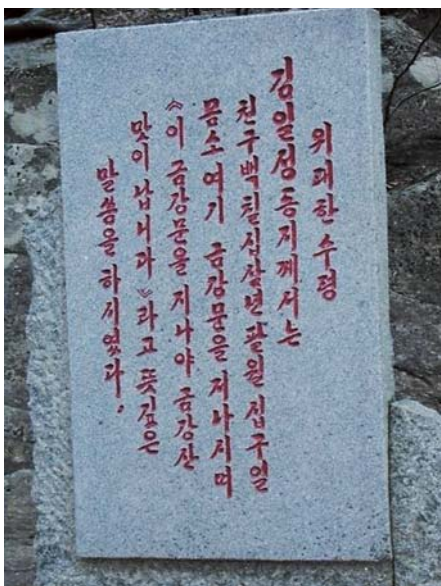 위대한 수령
김일성동지께서는
천구백칠십삼년 팔월 십구일
몸소 여기 금강문을 지나시며
《이 금강문을 지나야 금강산
맛이 납니다》라고 뜻깊은
말씀을 하시였다.